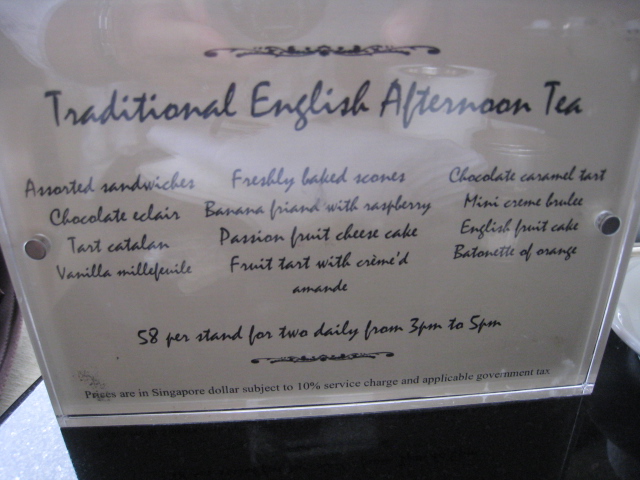 Traditional English Afternoon Tea
Assorted sandwiches
Chocolate eclair
Tart catalan
Vanilla millefeuile
Freshly baked scones
Banana friand with raspberry
Passion fruit cheese cake
Fruit tart with crème'd
amande
Chocolate caramel tart
Mini creme brulee
English fruit cake
Batonette of orange
58 per stand for two daily from 3pm to 5pm
Prices are in Singapore dollar subject to 10% service charge and applicable government tax